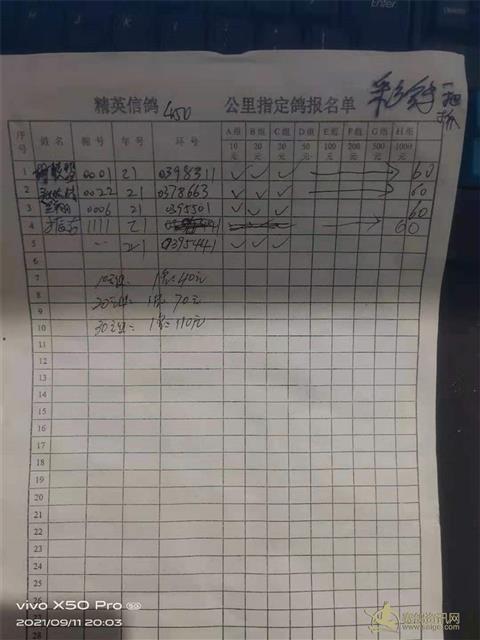 Enter
精英信鸽 450 公里指定鸽报名单
序号 姓名 棚号 年号 环号 A组 10元 B组 20元 C组 30元 D组 50元 E组 100元 F组 200元 G组 500元 H组 1000元
1 0001 21 0398311 ✓ ✓ ✓ 60
2 0022 21 0378663 ✓ ✓ ✓ 60
3 0006 21 0395501 ✓ ✓ ✓ 60
4 1111 21 60
5 21 0395441 ✓ ✓ ✓
6
7 10元组: 1名=40元
8 20元组= 1名=70元
9
10 30元组= 1名=110元
11
12
13
14
15
16
17
18
19
20
21
22
23
24
25
26
27
vivo X50 Pro
2021/09/11 20:03
赛鸽资讯网
www.saige.com